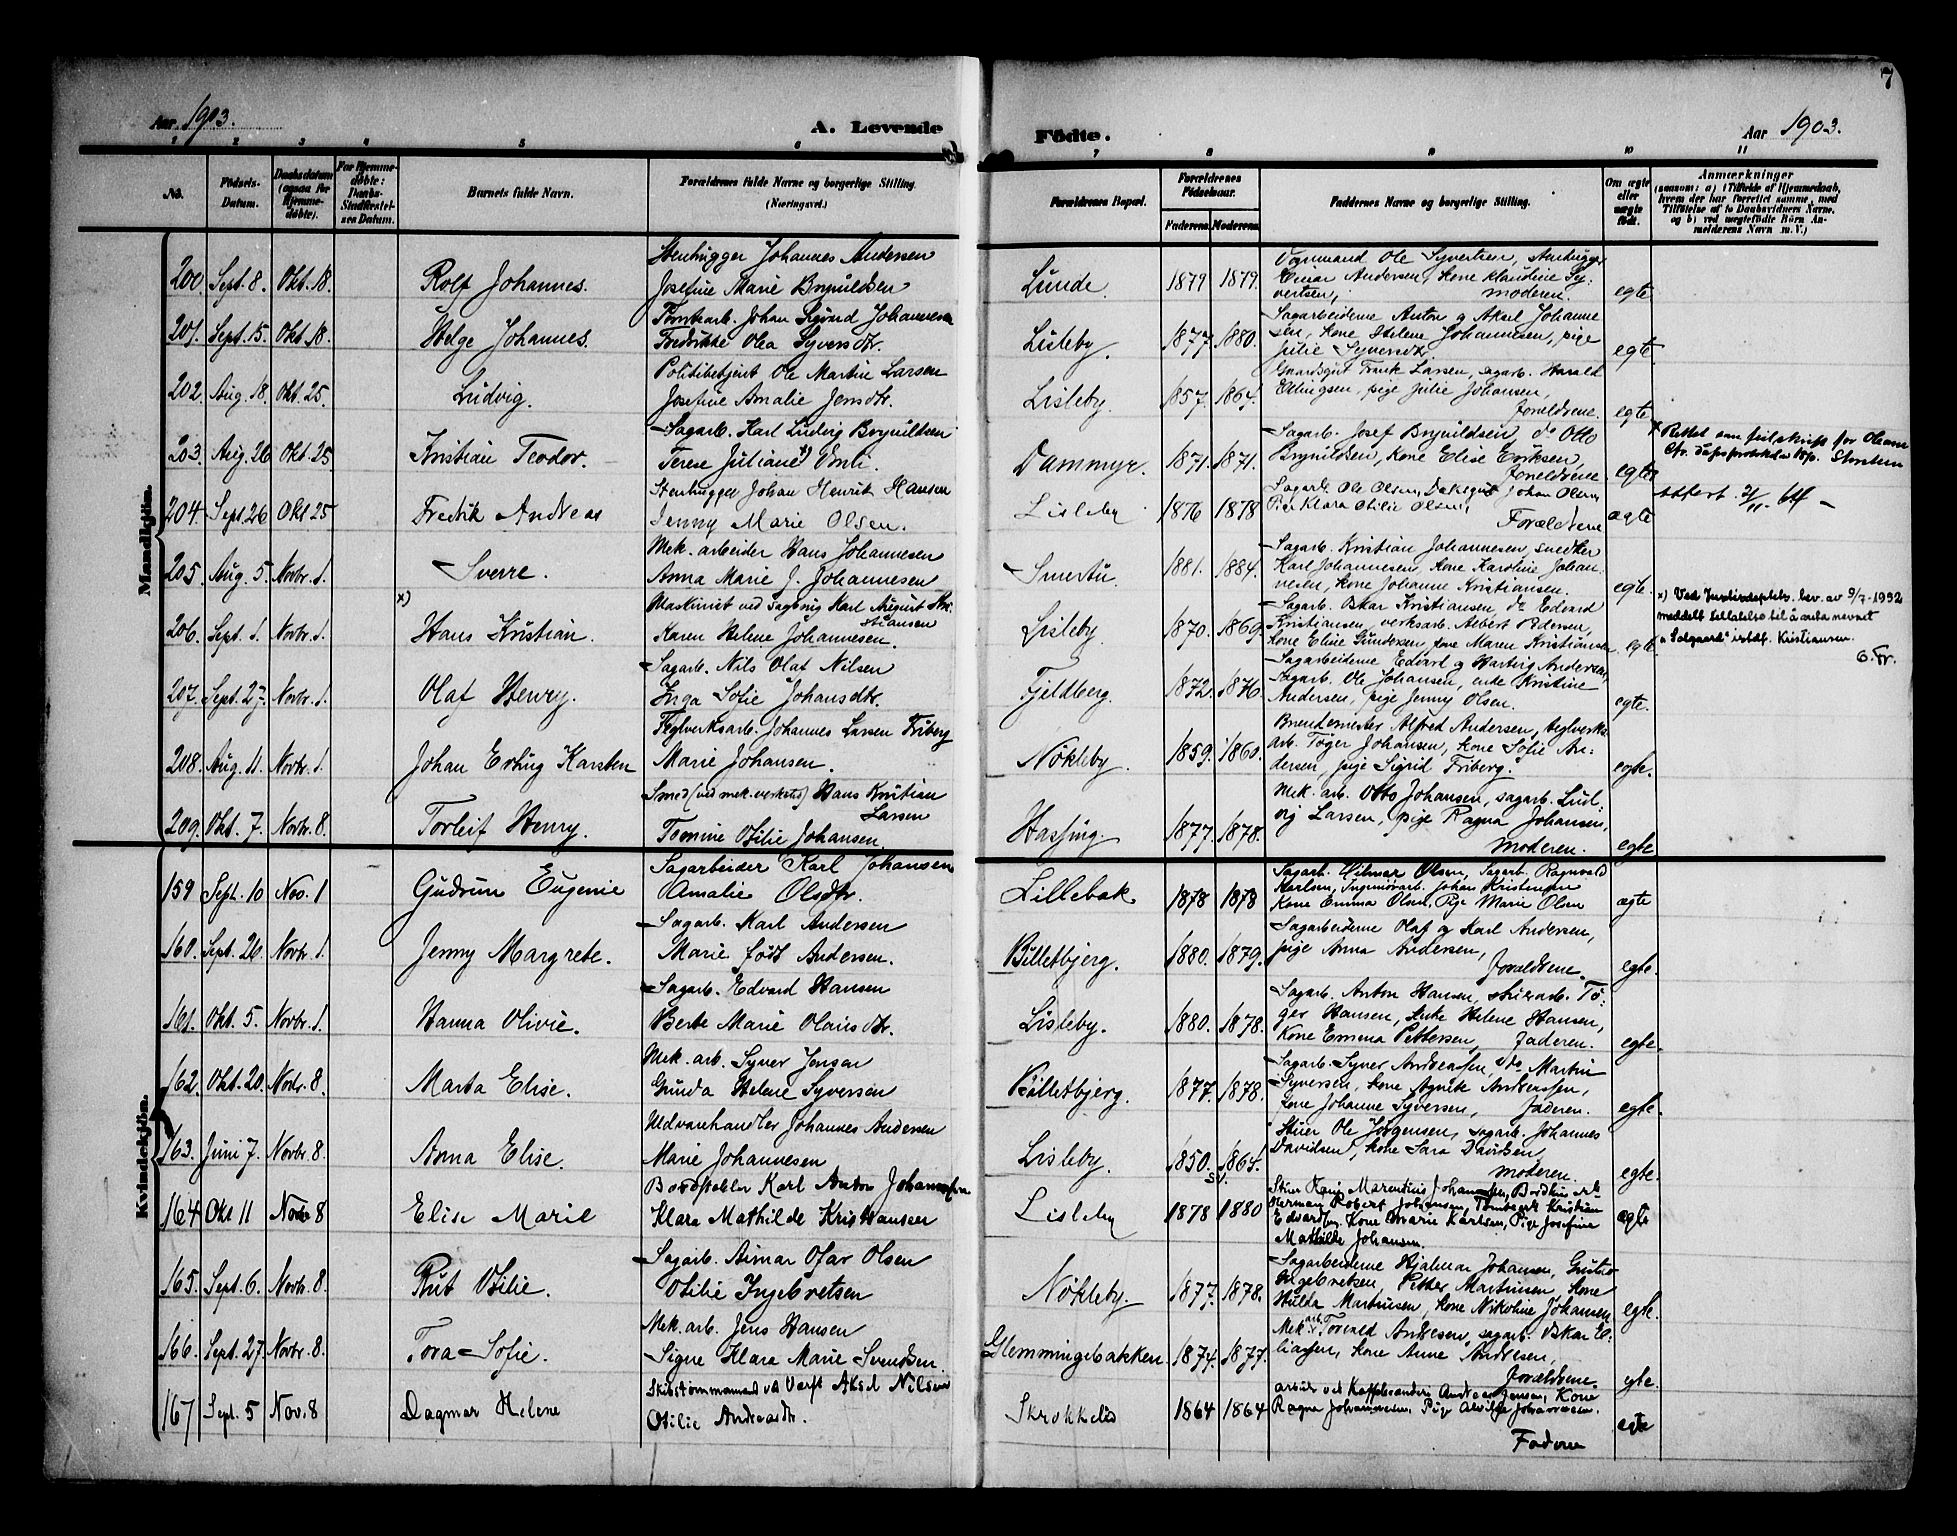 7
Aar 1903.
A. Levende Födte.
Aar 1903.
1 2 3 4 5 6 7 8 9 10 11
No.
Födsels-Datum.
Daabsdatum (ogsaa for Hjemme-døbte).
For Hjemme-døbte: Daabs-Stadfæstel-ses Datum.
Barnets fulde Navn.
Forældrenes fulde Navne og borgerlige Stilling.
(Næringsvei.)
Forældrenes Bopæl.
Forældrenes Fødselsaar.
Faderens. Moderens.
Faddernes Navne og borgerlige Stilling.
Om ægte eller uægte født.
Anmærkninger
(saasom: a) i Tilfælde af Hjemmedaab,
hvem der har forrettet samme, med
Tilføielse af to Daabsvidners Navne,
og b) ved uægtefödte Börn An-
melderens Navn m. V.)
Mandkjön.
200. Sept. 8. Okt. 18. Rolf Johannes.
Stenhugger Johannes Andersen
Josefine Marie Brynildsen
Lunde. 1879 1879.
Vognmand Ole Syvertsen, Stenhugger
Einar Andersen, Kone Klaudine Sy-
vertsen, moderen. egte
201. Sept. 15. Okt. 18. Helge Johannes.
Tomtearb. Johan Sigurd Johannesen
Fredrikke Olea Syversdtr.
Lisleby. 1877. 1880.
Sagarbeiderne Anton og Aksel Johanne
sen, Kone Helene Johannesen, pige
Julie Syversdtr. egte
202. Aug. 18. Okt. 25. Ludvig.
Politibetjent Ole Martin Larsen
Josefine Amalie Jensdtr.
Lisleby. 1857. 1864.
Gaardsgut Frank Larsen, sagarb. Harald
Ellingsen, pige Julie Johansen,
Forældrene. egte
203. Aug. 26 Okt. 25 Kristian Teodor.
Sagarb. Karl Ludvig Brynildsen
Terese Juliane x) Emli.
Dammyr. 1871. 1871.
Sagarb. Josef Brynildsen, do Otto
Brynildsen, Kone Elise Eriksen
Forældrene egte
x Rettet som feilskrift for Olsen
Cfr. dåpsprotokoll
attest 2/11-64 -
204. Sept. 26 Okt 25 Fredrik Andreas
Stenhugger Johan Henrik Hansen
Jenny Marie Olsen.
Lisleby 1876 1878
Sagarb. Ole Olsen, Dæksgut Johan Olsen,
Pige Klara Otilie Olsen,
Forældrene ægte
205 Aug. 5. Novbr. 1. Sverre.
Mek. arbeider Hans Johannesen
Anna Marie J. Johannesen
Smertu. 1881. 1884.
Sagarb. Kristian Johannesen, snedker
Karl Johannesen, Kone Karoline Johan-
nesen, Kone Johanne Kristiansen. egte.
206. Sept. 1. Novbr. 1. x) Hans Kristian.
Maskinist ved sagbrug Karl August Kri-
stiansen
Karen Helene Johannesen.
Lisleby. 1870. 1869.
Sagarb. Oskar Kristiansen, do Edvard
Kristiansen, verksarb. Albert Pedersen,
Kone Elise Gundersen, Kone Maren Kristiansen egte
x) Ved Justisdeptets. brev. av 9/7-1932
meddelt tillatelse til å anta navnet
"Solgaard" istdf. Kristiansen.
O. Fr.
207. Sept. 27. Novbr. 1. Olaf Henry.
Sagarb. Nils Olaf Nilsen
Inga Sofie Johansdtr.
Fjeldberg. 1872. 1876.
Sagarbeiderne Edvard og Hartvig Andersen,
Sagarb. Ole Johansen, enke Kristine
Andersen, pige Jenny Olsen. egte.
208. Aug. 11. Novbr. 1. Johan Erling Karsten
Teglverksarb. Johannes Larsen Friberg
Marie Johansen.
Nökleby. 1859. 1860.
Brendemester Alfred Andersen, teglverks-
arb. Töger Johansen, Kone Sofie An-
dersen, pige Sigrid Friberg. egte.
209. Okt. 7. Novbr. 8. Torleif Henry.
Smed (ved mek. verksted) Hans Kristian
Larsen
Tomine Otilie Johansen
Hassing. 1877. 1878.
Mek. arb. Otto Johansen, sagarb. Lud-
vig Larsen, pige Ragna Johansen,
moderen. egte
Kvindekjön.
159 Sept. 10 Nov. 1 Gudrun Eugenie
Sagarbeider Karl Johansen
Amalie Olsdtr.
Lillebæk 1878 1878
Sagarb. Hilmar Olsen, Sagarb. Ragnvald
Karlsen, Johan Kristensen
Kone Emma Olsen, Pige Marie Olsen ægte
160. Sept. 26. Novbr. 1. Jenny Margrete.
Sagarb. Karl Andersen
Marie født Andersen.
Billetbjerg. 1880. 1879.
Sagarbeiderne Olaf og Karl Andersen,
pige Anna Andersen,
Forældrene. egte.
161. Okt. 5. Novbr. 1. Hanna Olivie.
Sagarb. Edvard Hansen
Berte Marie Olausdtr.
Lisleby. 1880. 1878.
Sagarb. Anton Hansen, stuerarb. Tö-
ger Hansen, Enke Helene Hansen,
Kone Emma Pettersen, Faderen. egte.
162. Okt. 20. Novbr. 8. Marta Elise.
Mek. arb. Syver Jensen
Gunda Helene Syversen
Billetbjerg. 1877. 1878.
Sagarb. Syver Andreassen, do Martin
Syversen, Kone Agnete Andreassen,
Kone Johanne Syversen, Faderen. egte.
163. Juni 7. Novbr. 8. Anna Elise.
Uldvarehandler Johannes Andersen
Marie Johannesen
Lisleby. 1850. 1864.
Stuer Ole Jørgensen, sagarb. Johannes
Davidsen, Kone Sara Davidsen,
moderen. egte.
164 Okt 11 Novbr 8 Elise Marie
Bordstabler Karl Anton Johannesen
Klara Mathilde Kristiansen
Lisleby 1878 1880
Stuer Hans Marentius Johannessen,
Herman Robert Johansen, Kristian
Edvardsen, Kone Marie Karlsen, Pige Josefine
Mathilde Johansen. ægte
165. Sept. 6. Novbr. 8. Rut Otilie.
Sagarb. Aimar Ofar Olsen
Otilie Ingebretsen
Nökleby. 1877. 1878.
Sagarbeiderne Hjalmar Johansen, Gustav
Ingebretsen, Petter Martinsen, Kone
Hulda Martinsen, Kone Nikoline Johansen egte.
166. Sept. 27. Novbr. 8. Tora Sofie.
Mek. arb. Jens Hansen
Signe Klara Marie Svendsen.
Glemmingebakken. 1874. 1877.
Mek. arb. Torvald Andresen, sagarb. Oskar E-
liassen, Kone Anne Andresen,
Forældrene egte.
167 Sept. 5 Nov. 8 Dagmar Helene
Skibstømmermand ved Værft Aksel Nilsen
Otilie Andreasdtr.
Skrokkelid 1864 1864
arbeider ved Andreas Jensen, Kone
Ragna Johannesen, Pige Alvilde Johannesen.
Faderen egte